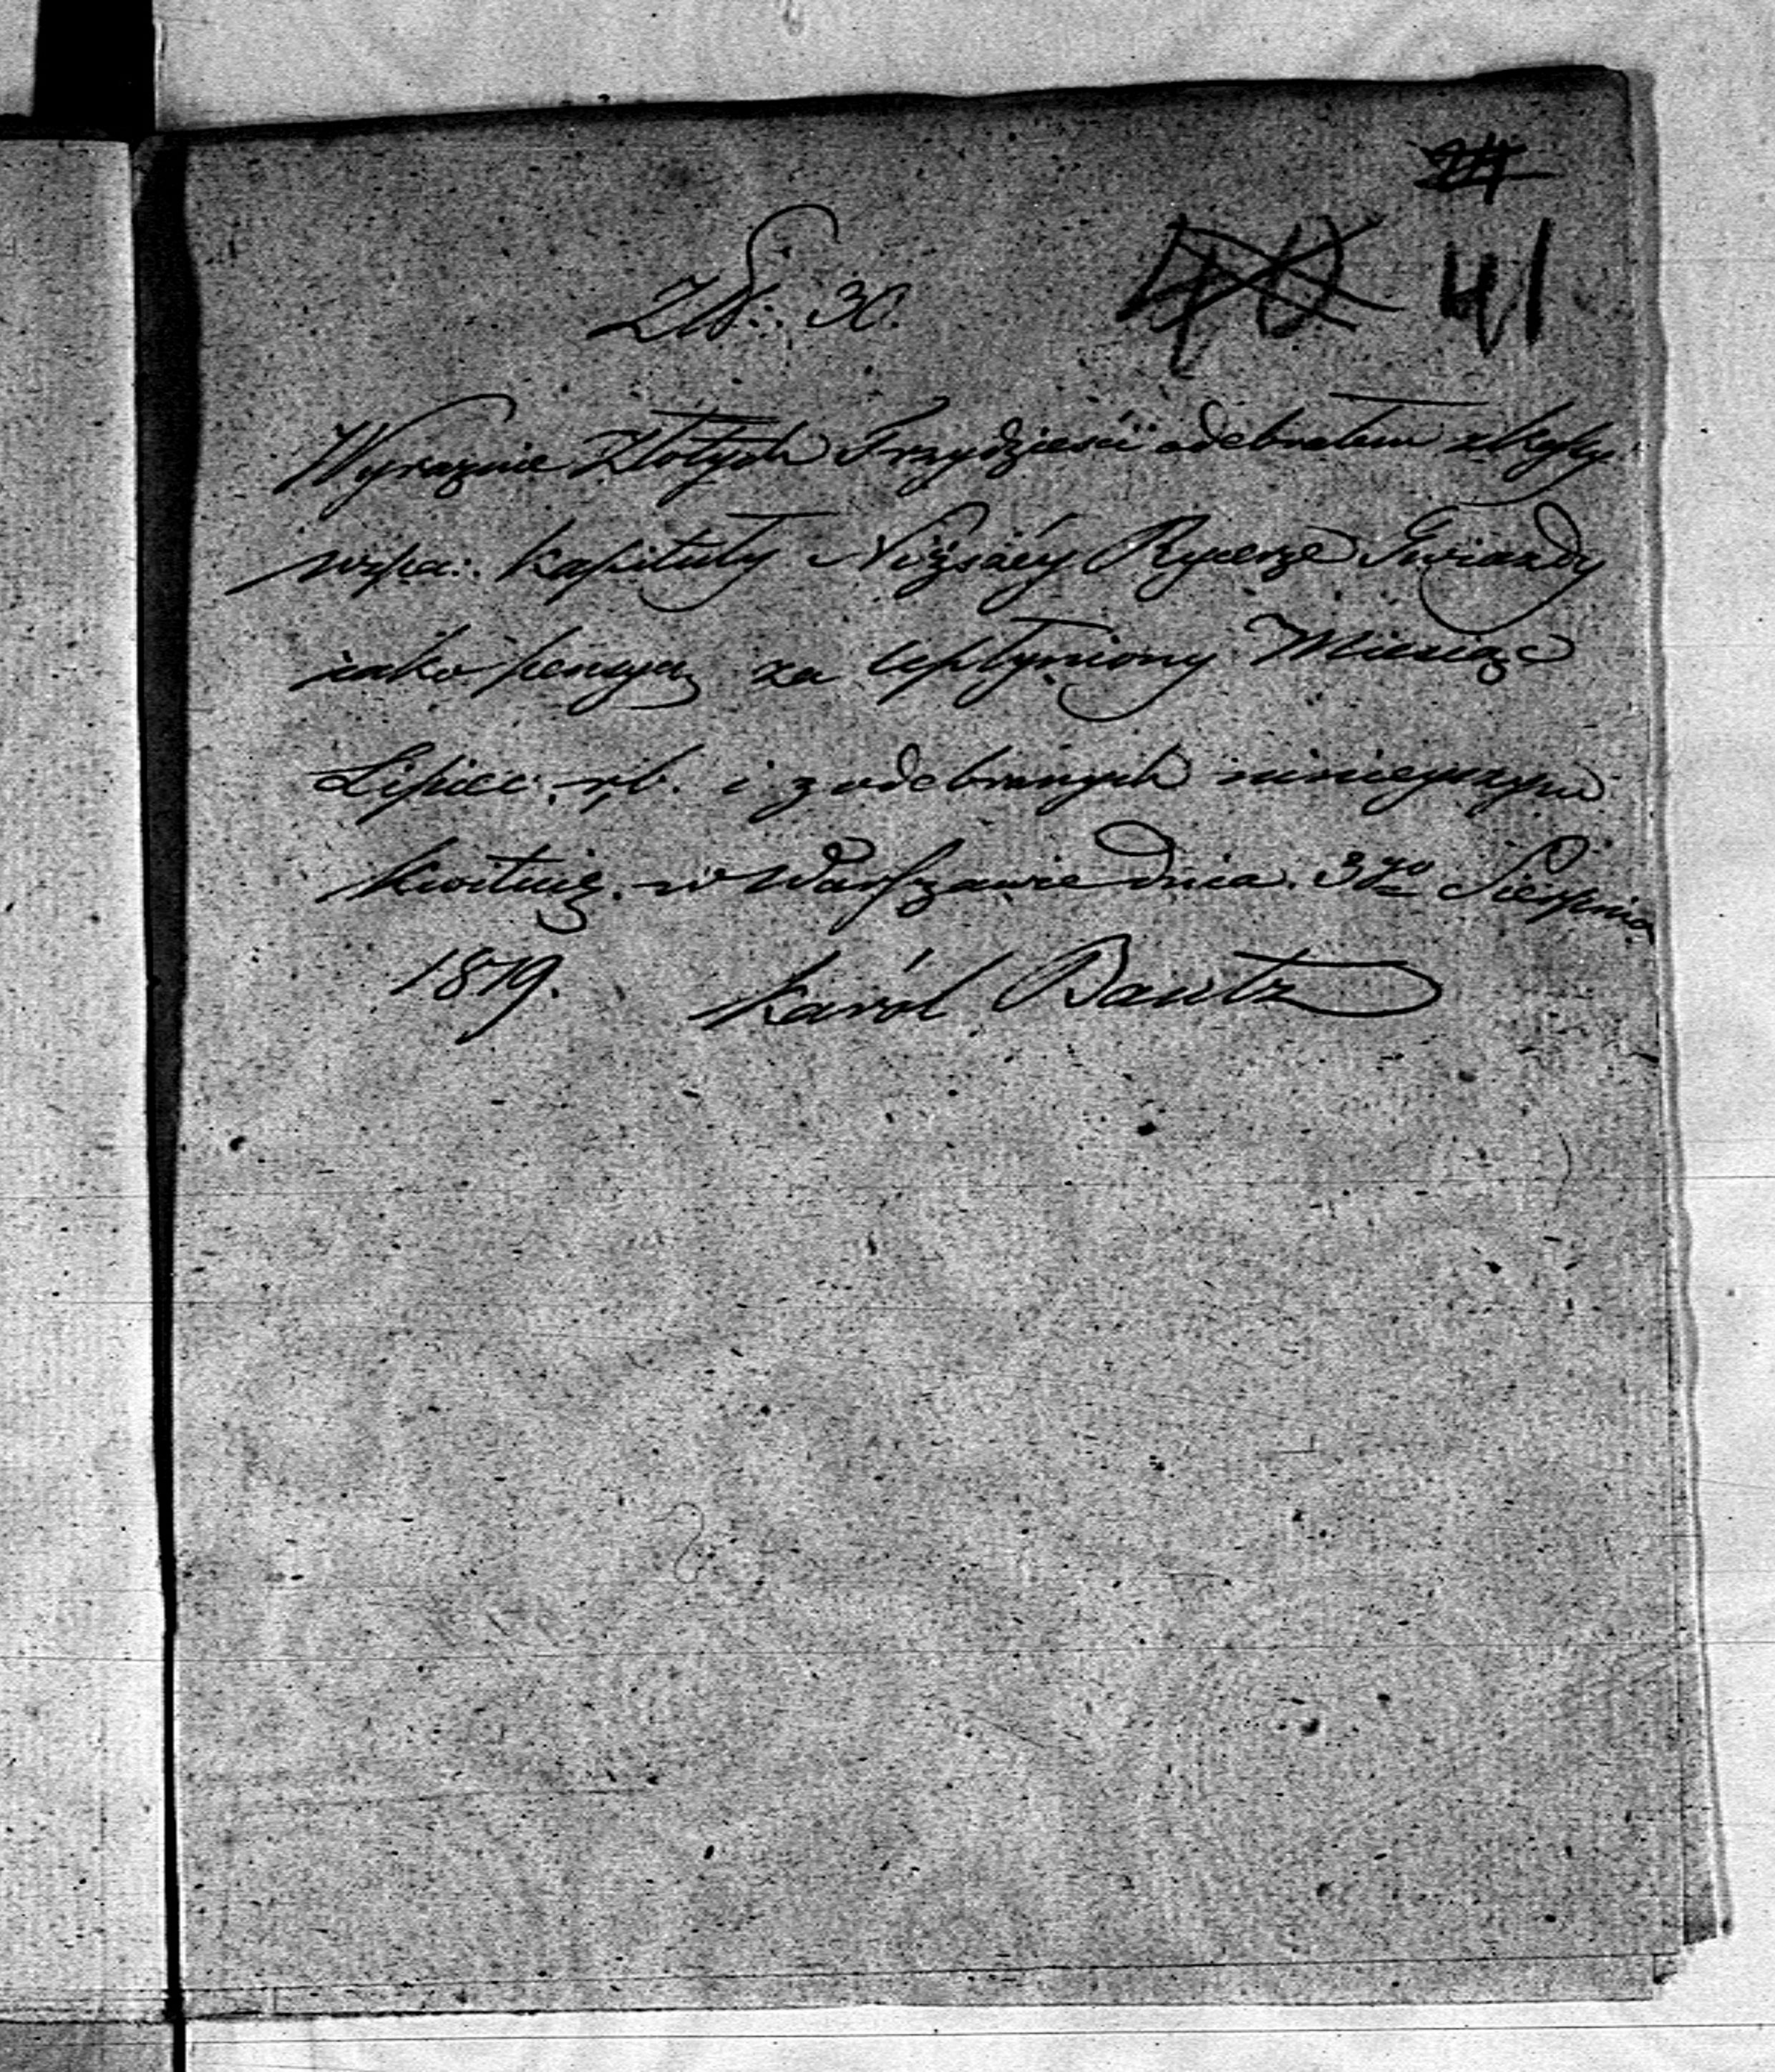 40 41
Złł: 30.
Wyraznie Złotych Trzydziesci odebrałem z Kassy
Kapituły Niższéy Rycerze Gwiazdy
iako pensyą za upłyniony Miesiąc
Lipiec r.b. i z odebranych ninieyszym
kwituię. w Warszawie dnia. 3go Sierpnia
1819. Karól Bautz